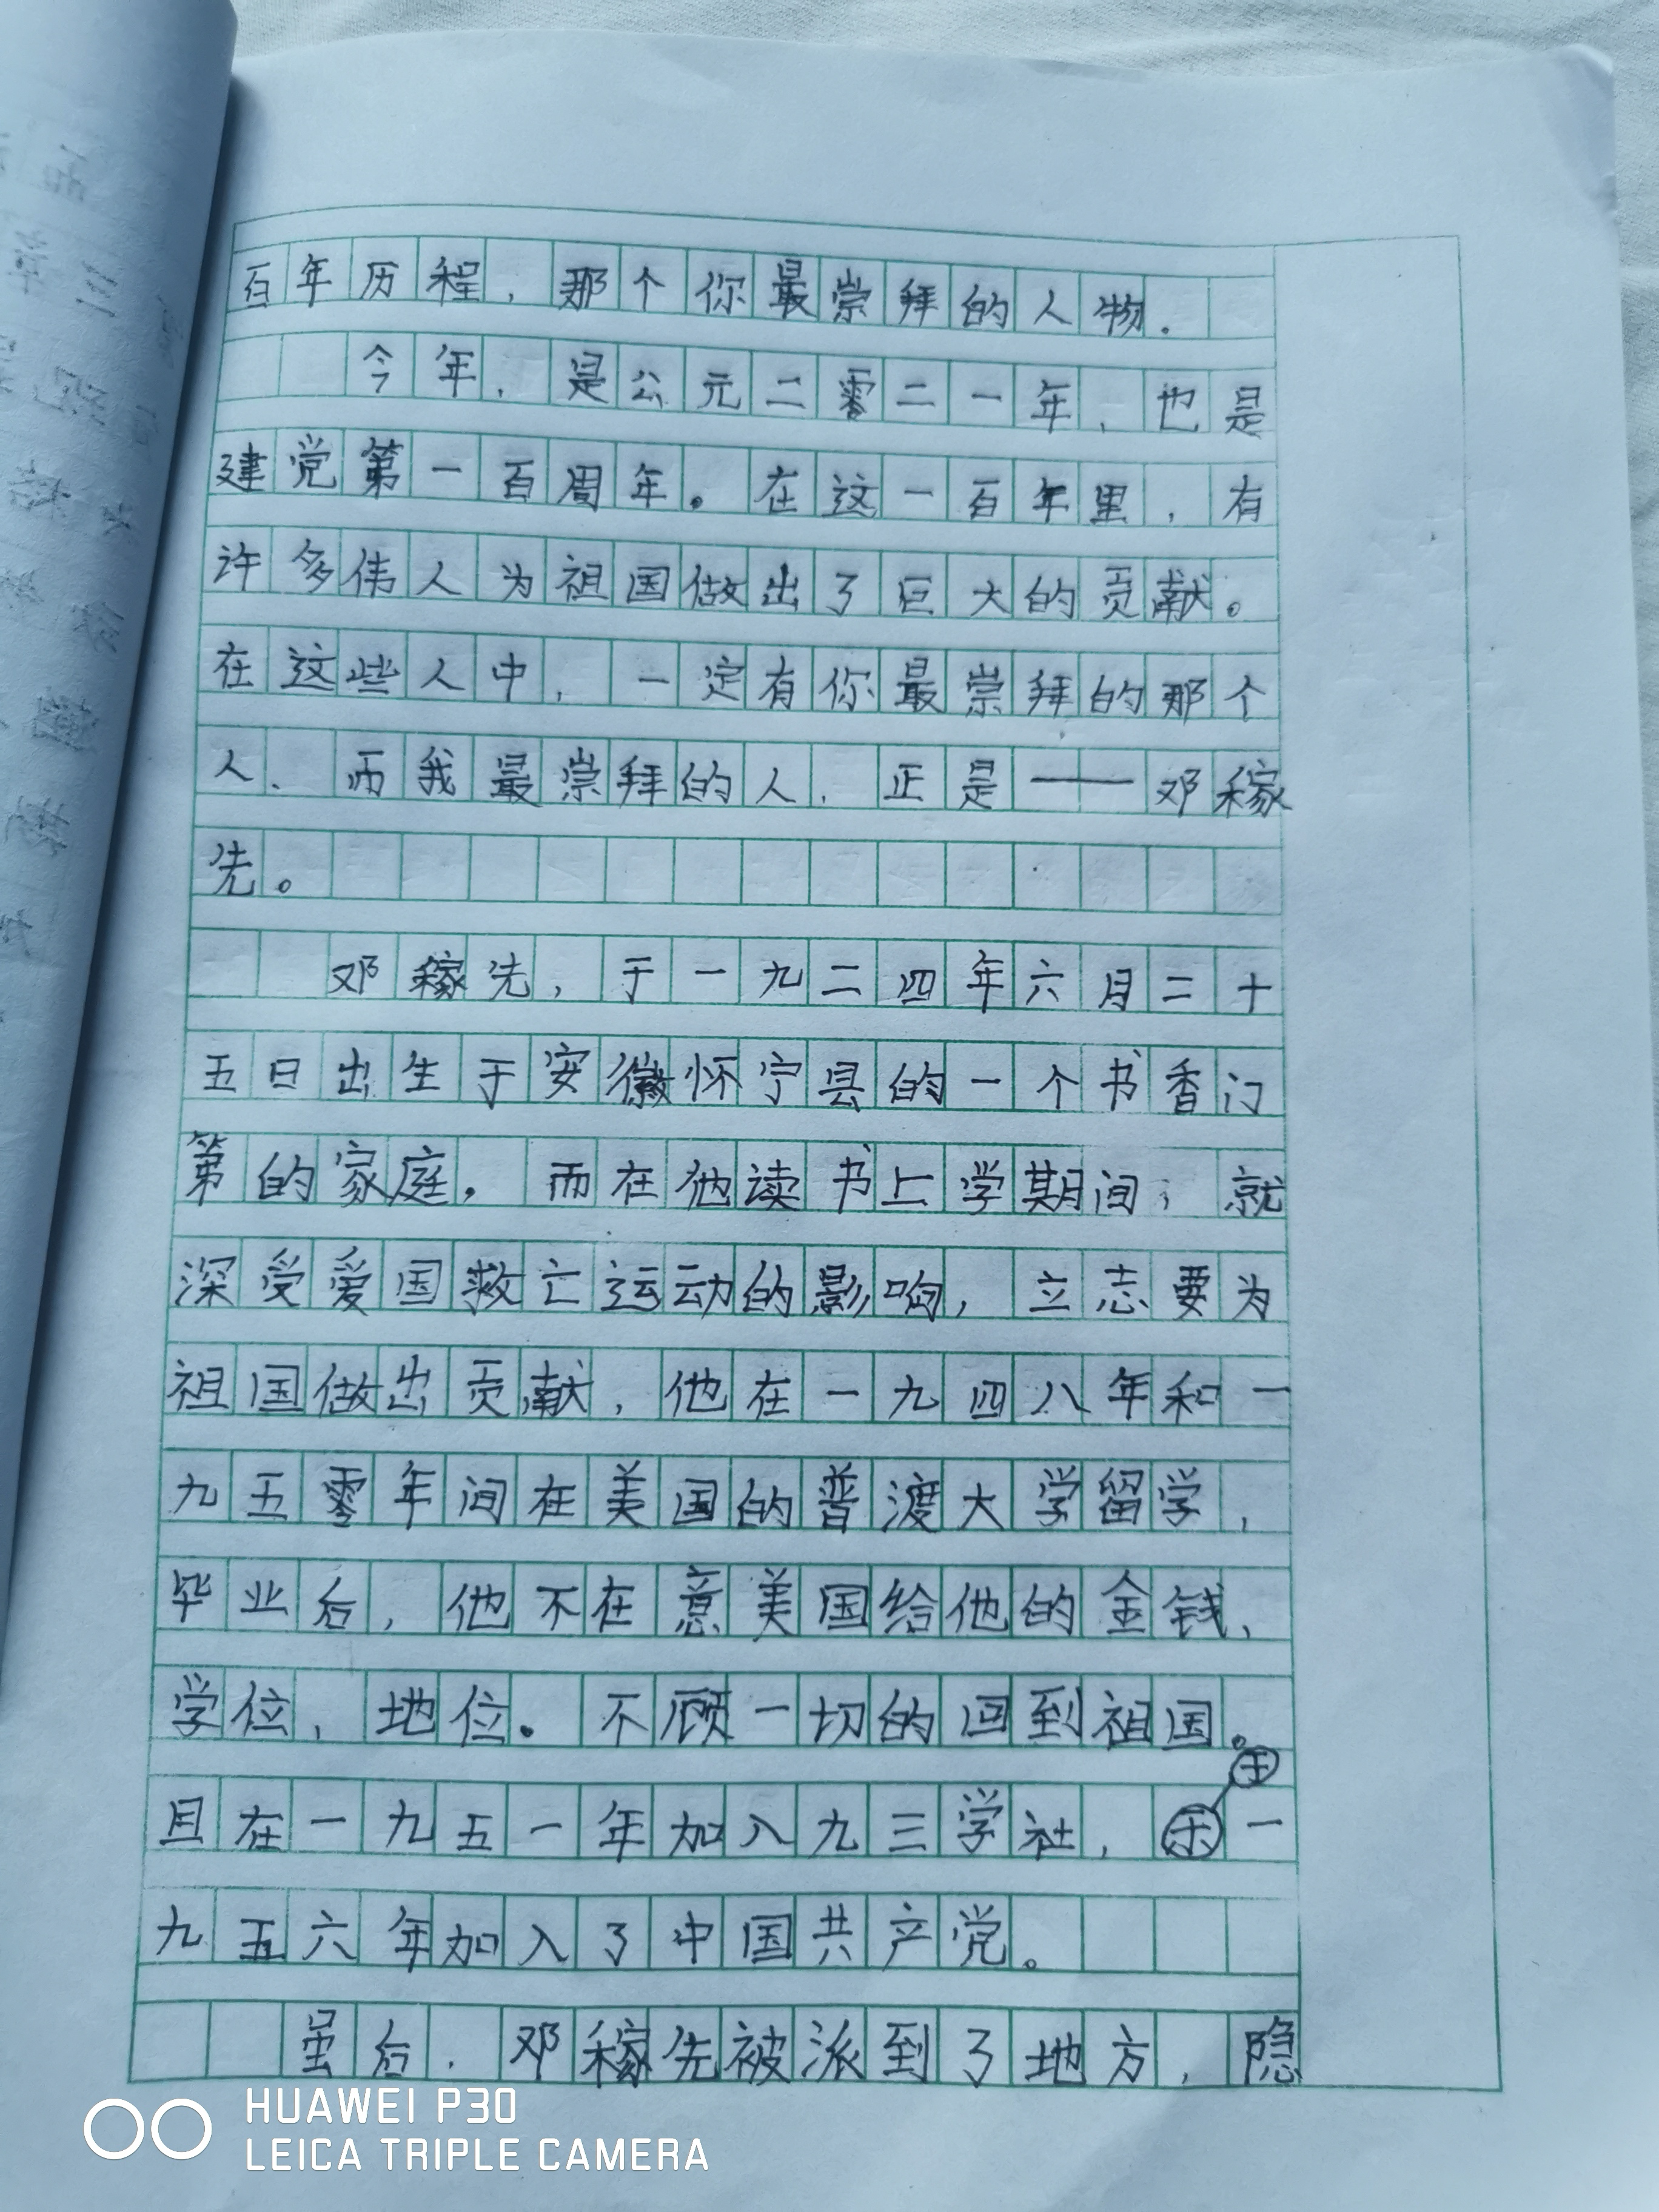 百年历程，那个你最崇拜的人物.
今年，是公元二零二一年，也是
建党第一百周年。在这一百年里，有
许多伟人为祖国做出了巨大的贡献。
在这些人中，一定有你最崇拜的那个
人、而我最崇拜的人.正是——邓稼
先。
邓稼先，于一九二四年六月二十
五日出生于安徽怀宁县的一个书香门
第的家庭，而在他读书上学期间，就
深受爱国救亡运动的影响，立志要为
祖国做出贡献，他在一九四八年和一
九五零年间在美国的普渡大学留学，
毕业后，他不在意美国给他的金钱、
学位，地位。不顾一切的回到祖国。
且在一九五一年加入九三学社，于一
九五六年加入了中国共产党。
虽后.邓稼先被派到了地方，隐
HUAWEI P30
LEICA TRIPLE CAMERA